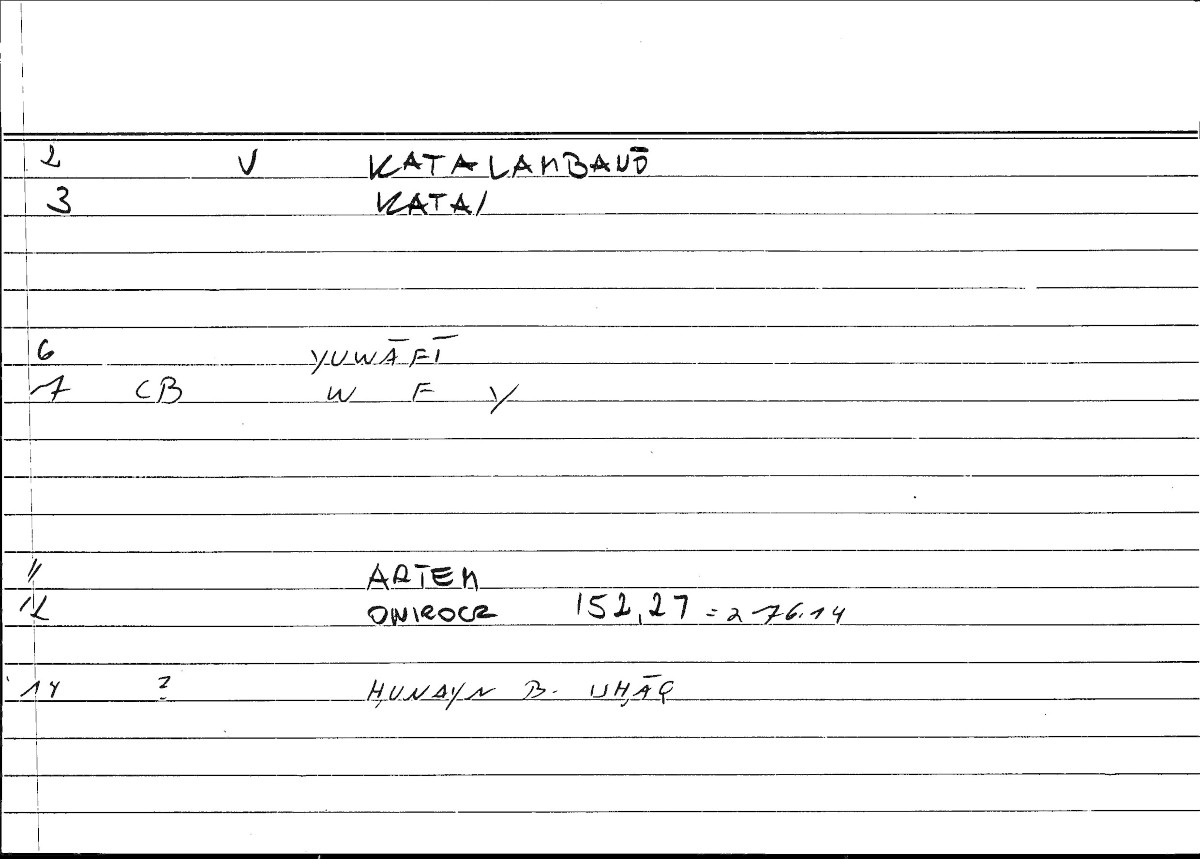 2 V KATALAMBANŌ
3 KATA/
6 YUWĀFĪ
7 CB W F Y
11 ARTEM
12 ONIROCR 152,27 = 276.14
14 ? ḤUNAYN B. ISḤĀQ